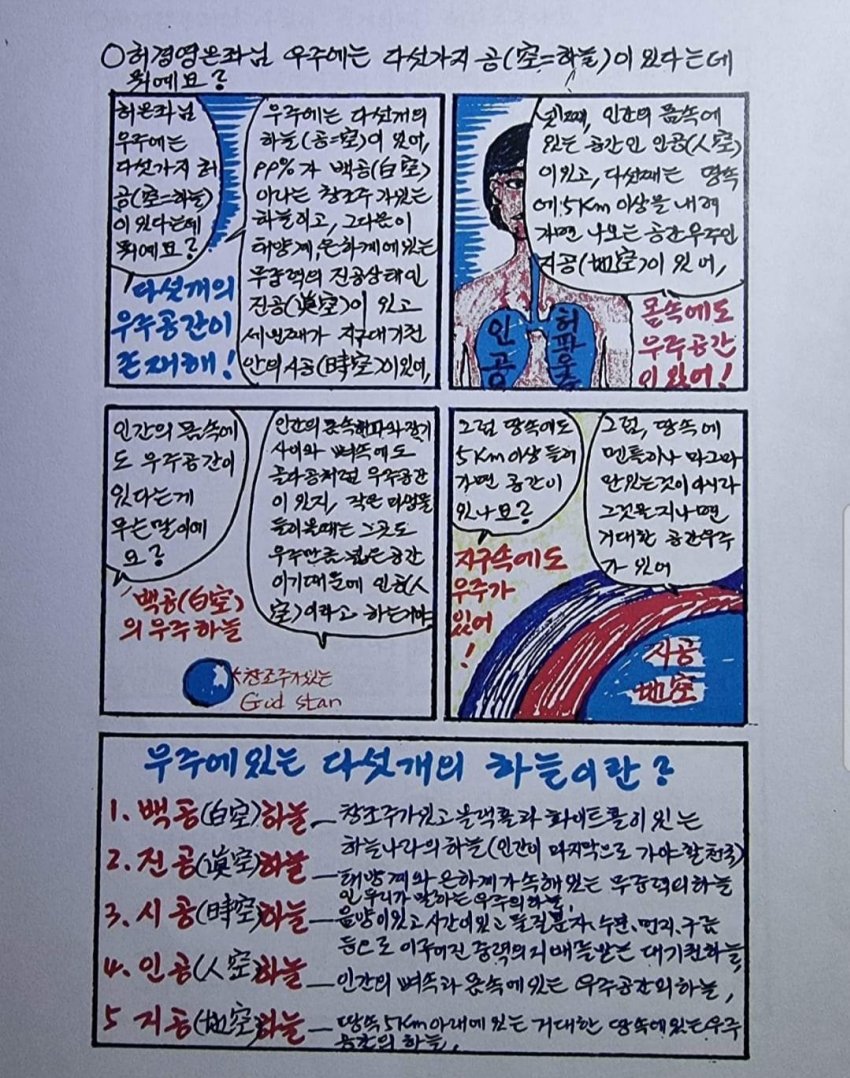 ○허경영은좌님 우주에는 다섯가지 공(空=하늘)이 있다는데
뭐예요?
허은좌님
우주에는
다섯가지 허
공(空=하늘)
이 있다는데
뭐예요?
다섯개의
우주공간이
존재해!
우주에는 다섯개의
하늘(공=空)이 있어,
99%가 백공(白空)
이라는 창조주가있는
하늘이고, 그다음이
태양계,은하계에있는
무중력의 진공상태인
진공(眞空)이 있고
세번째가 지구대기권
안의 시공(時空)이있어,
넷째, 인간의 몸속에
있는 공간인 인공(人空)
이있고, 다섯째는 땅속
에.5Km 이상을 내려
가면 나오는 공간우주인
지공(地空)이 있어,
인공
허파우주
몸속에도
우주공간
이 있어!
인간의 몸속에
도 우주공간이
있다는게
무슨말이에
요?
백공(白空)
의 우주하늘
인간의 몸속허파와 장기
사이와 뼈속에도
골다공처럼 우주공간
이 있지, 작은 미생물
들이 볼때는 그곳도
우주만큼 넓은 공간
이기때문에 인공(人
空)이라고 하는거야
창조주가있는
God star
그럼 땅속에도
5Km이상 들어
가면 공간이
있나요?
지구속에도
우주가
있어
!
그럼, 땅속에
멘틀이나 마그마
만 있는것이 아니라
그것을 지나면
거대한 공간우주
가 있어
지공
地空
우주에 있는 다섯개의 하늘이란?
1. 백공(白空)하늘 — 창조주가있고 블랙홀과 화이트홀이 있는
하늘나라의 하늘(인간이 마지막으로 가야할 천국)
2. 진공(眞空)하늘 — 태양계와 은하계가 속해있는 무중력의하늘
인 우리가 말하는 우주의하늘,
3. 시공(時空)하늘 — 음양이있고 시간이있고 물질분자, 수면, 먼지, 구름
등으로 이루어진 중력의지배를받는 대기권하늘,
4. 인공(人空)하늘 — 인간의 뼈속과 몸속에있는 우주공간의하늘,
5 지공(地空)하늘 — 땅속 5Km아래에 있는 거대한 땅속에있는우주
공간의 하늘.